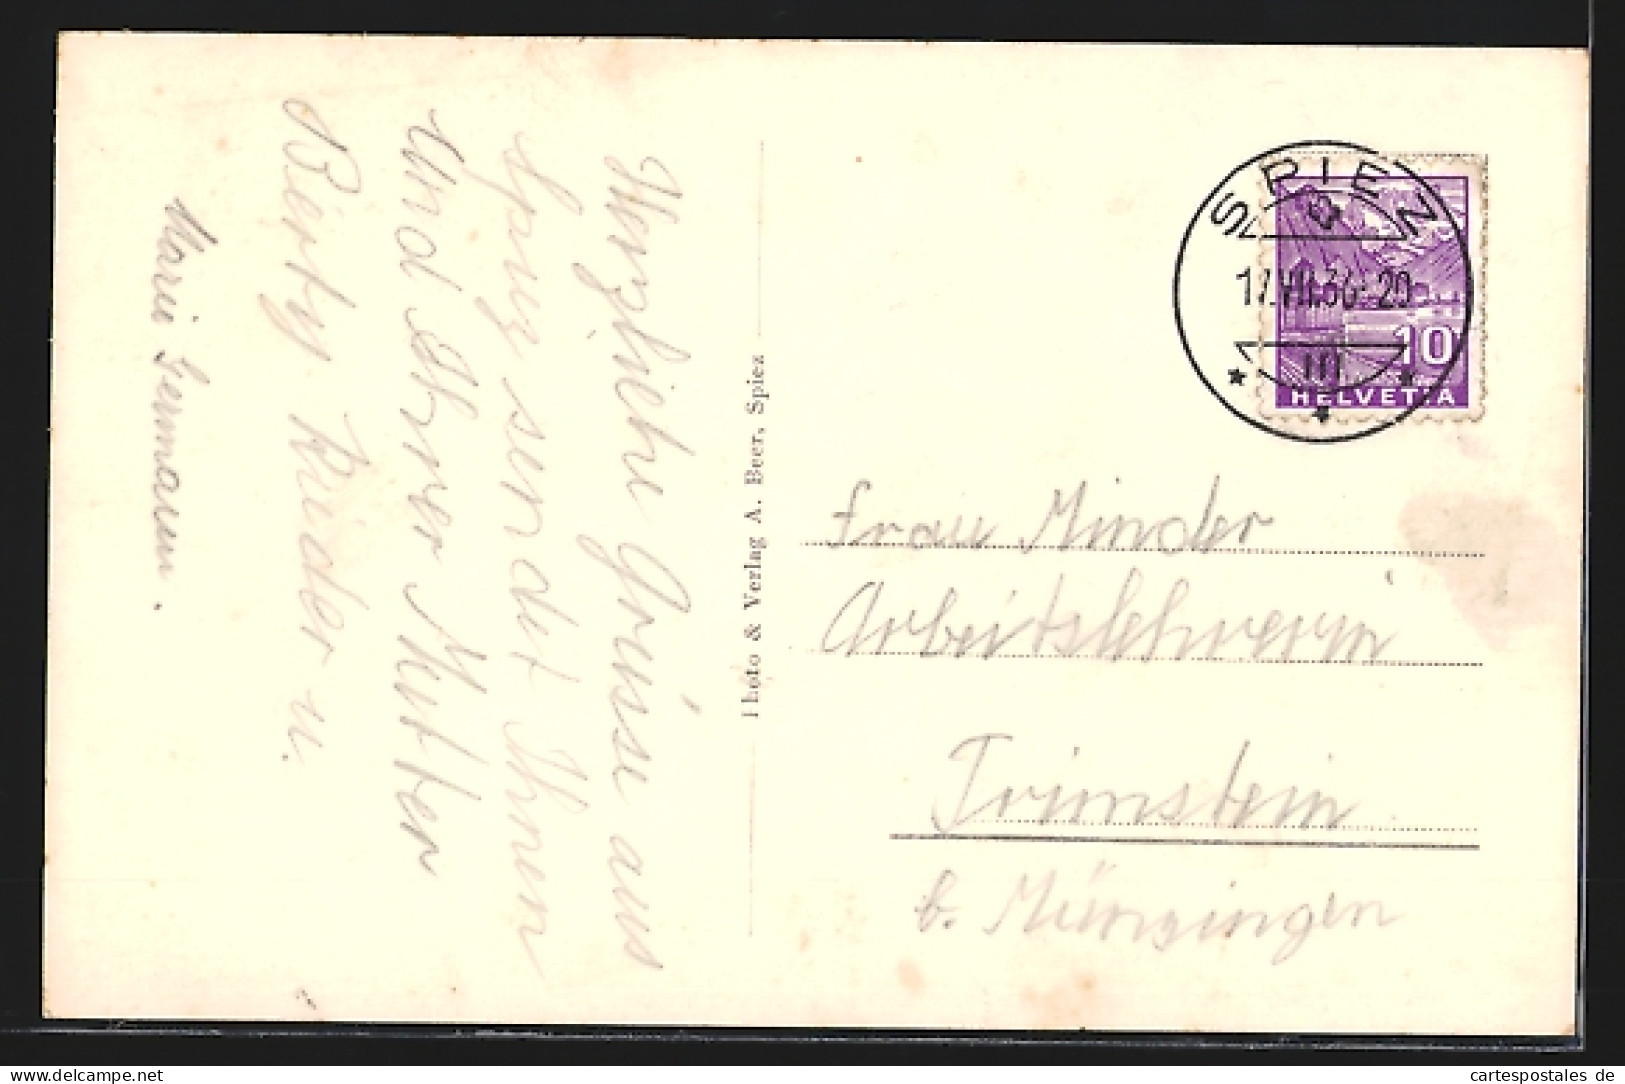 Herzliche Grüsse aus
Spiez sendet Ihnen
und Ihrer Mutter
Berty Rieder u.
Marie Germann.
Photo & Verlag A. Beer, Spiez
SPIEZ
17.VII.36-20
III
10
HELVETIA
Frau Minder
Arbeitslehrerin
Trimstein
b. Münsingen
www.cartespostales.de
cartespostales de